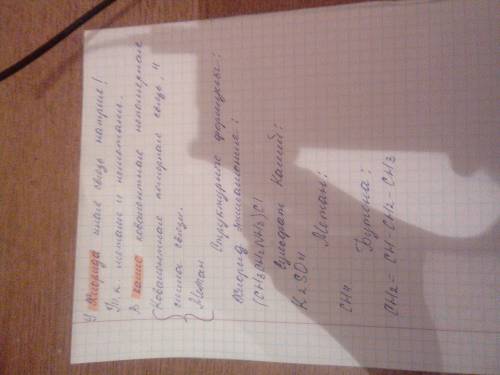 У хлорида иная связь натрия!
Т.к. металл и неметалл.
В ковалентная неполярная
(Ковалентная полярная связь, и
связи.
Метан
Структурные формулы:
Хлорид этиламмония:
(CH3CH2NH3)Cl
Сульфат калий:
K2SO4
Метан:
CH4
Бутена:
CH2= CH-CH2-CH3